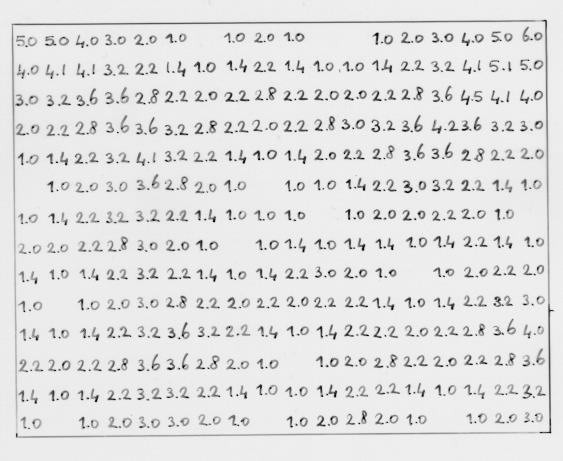 5.0 5.0 4.0 3.0 2.0 1.0 1.0 2.0 1.0 1.0 2.0 3.0 4.0 5.0 6.0
4.0 4.1 4.1 3.2 2.2 1.4 1.0 1.4 2.2 1.4 1.0 1.0 1.4 2.2 3.2 4.1 5.1 5.0
3.0 3.2 3.6 3.6 2.8 2.2 2.0 2.2 2.8 2.2 2.0 2.0 2.2 2.8 3.6 4.5 4.1 4.0
2.0 2.2 2.8 3.6 3.6 3.2 2.8 2.2 2.0 2.2 2.8 3.0 3.2 3.6 4.2 3.6 3.2 3.0
1.0 1.4 2.2 3.2 4.1 3.2 2.2 1.4 1.0 1.4 2.0 2.2 2.8 3.6 3.6 2.8 2.2 2.0
1.0 2.0 3.0 3.6 2.8 2.0 1.0 1.0 1.0 1.4 2.2 3.0 3.2 2.2 1.4 1.0
1.0 1.4 2.2 3.2 3.2 2.2 1.4 1.0 1.0 1.0 1.0 2.0 2.0 2.2 2.0 1.0
2.0 2.0 2.2 2.8 3.0 2.0 1.0 1.0 1.4 1.0 1.4 1.4 1.0 1.4 2.2 1.4 1.0
1.4 1.0 1.4 2.2 3.2 2.2 1.4 1.0 1.4 2.2 3.0 2.0 1.0 1.0 2.0 2.2 2.0
1.0 1.0 2.0 3.0 2.8 2.2 2.0 2.2 2.0 2.2 2.2 1.4 1.0 1.4 2.2 3.2 3.0
1.4 1.0 1.4 2.2 3.2 3.6 3.2 2.2 1.4 1.0 1.4 2.2 2.2 2.0 2.2 2.8 3.6 4.0
2.2 2.0 2.2 2.8 3.6 3.6 2.8 2.0 1.0 1.0 2.0 2.8 2.2 2.0 2.2 2.8 3.6
1.4 1.0 1.4 2.2 3.2 3.2 2.2 1.4 1.0 1.0 1.4 2.2 2.2 1.4 1.0 1.4 2.2 3.2
1.0 1.0 2.0 3.0 3.0 2.0 1.0 1.0 2.0 2.8 2.0 1.0 1.0 2.0 3.0